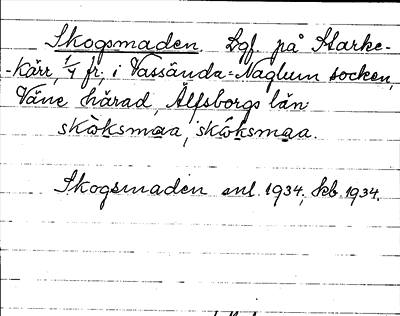 Skogsmaden. Lgf. på Starke-
-Kärr, 1/4 fr. i Vassända-Naglum socken,
Väne härad, Älfsborgs län
skòksmaa, skòksmaa.
Skogsmaden enl. 1934, kb. 1934.